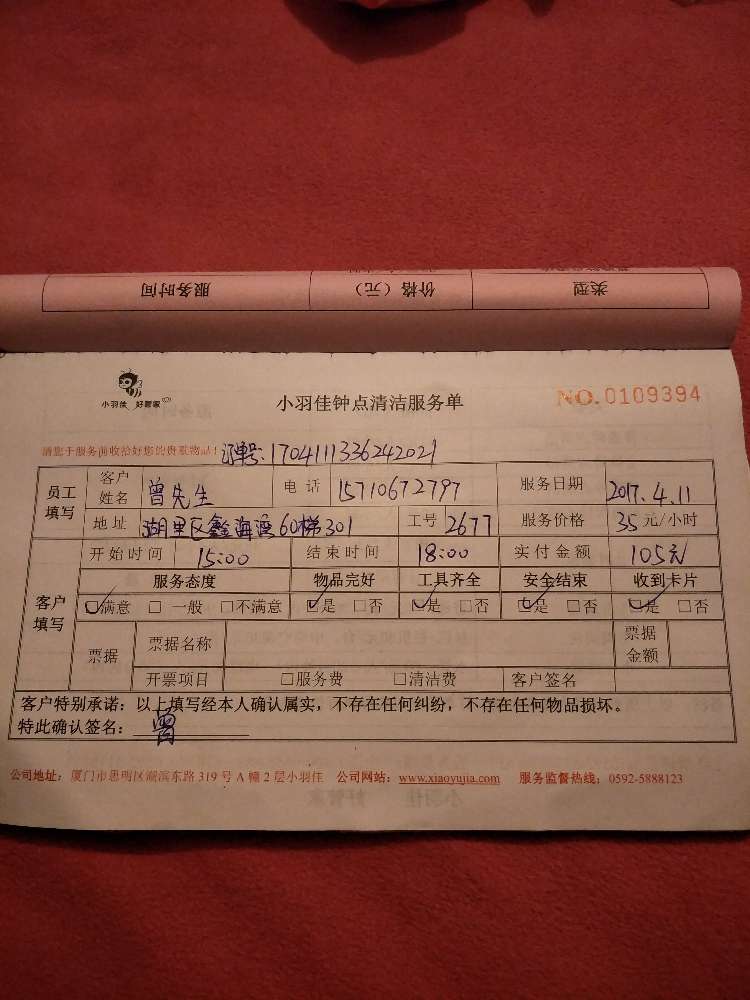 服务时间 价格（元） 类型
小羽佳 好管家
小羽佳钟点清洁服务单
NO.0109394
请您于服务前收拾好您的贵重物品！ 订单号:1704111336242021
员工填写 客户姓名 曾先生 电话 15710672797 服务日期 2017.4.11
地址 湖里区鑫海湾60梯301 工号 2677 服务价格 35元/小时
客户填写 开始时间 15:00 结束时间 18:00 实付金额 105元
服务态度 物品完好 工具齐全 安全结束 收到卡片
☑满意 □一般 □不满意 ☑是 □否 ☑是 □否 ☑是 □否 ☑是 □否
票据 票据名称 票据金额
开票项目 □服务费 □清洁费 客户签名
客户特别承诺：以上填写经本人确认属实，不存在任何纠纷，不存在任何物品损坏。
特此确认签名： 曾
公司地址：厦门市思明区湖滨东路319号A幢2层小羽佳 公司网站：www.xiaoyujia.com 服务监督热线：0592-5888123